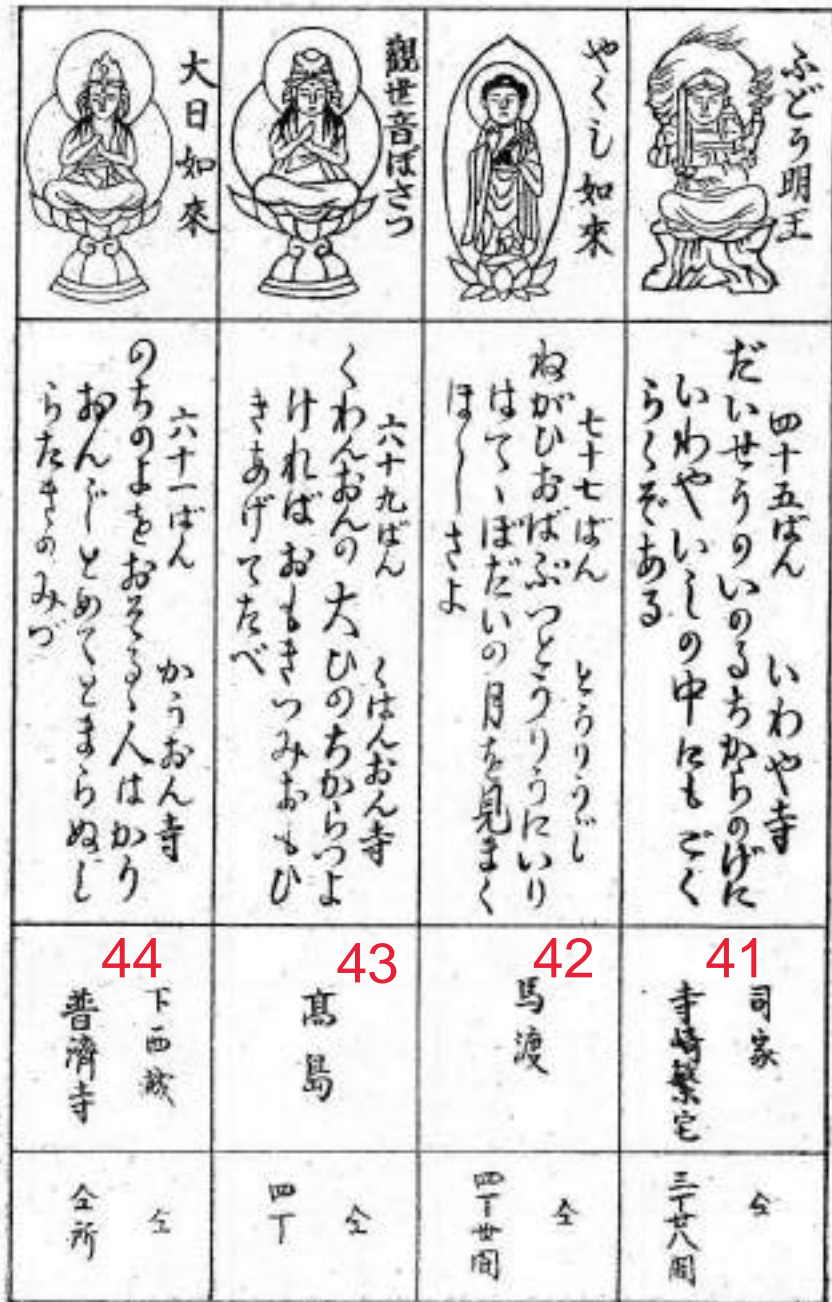 ふどう明王
四十五ばん いわや寺
だいせうのいのるちからのげに
いわやいしの中にもごく
らくぞある
41
司家
寺崎繁宅
仝
三丁廿八間
やくし如来
七十七ばん とうりうじ
ねがひおばぶつどうりうにいり
はてゝぼだいの月を見まく
ほしさよ
42
馬渡
仝
四丁丗間
觀世音ぼさつ
六十九ばん くはんおん寺
くわんおんの大ひのちからつよ
ければおもきつみおもひ
きあげてたべ
43
髙島
仝
四丁
大日如來
六十一ばん かうおん寺
のちのよをおそるゝ人はかう
おんじとめてとまらぬし
らたきのみづ
44
普濟寺
仝
仝所